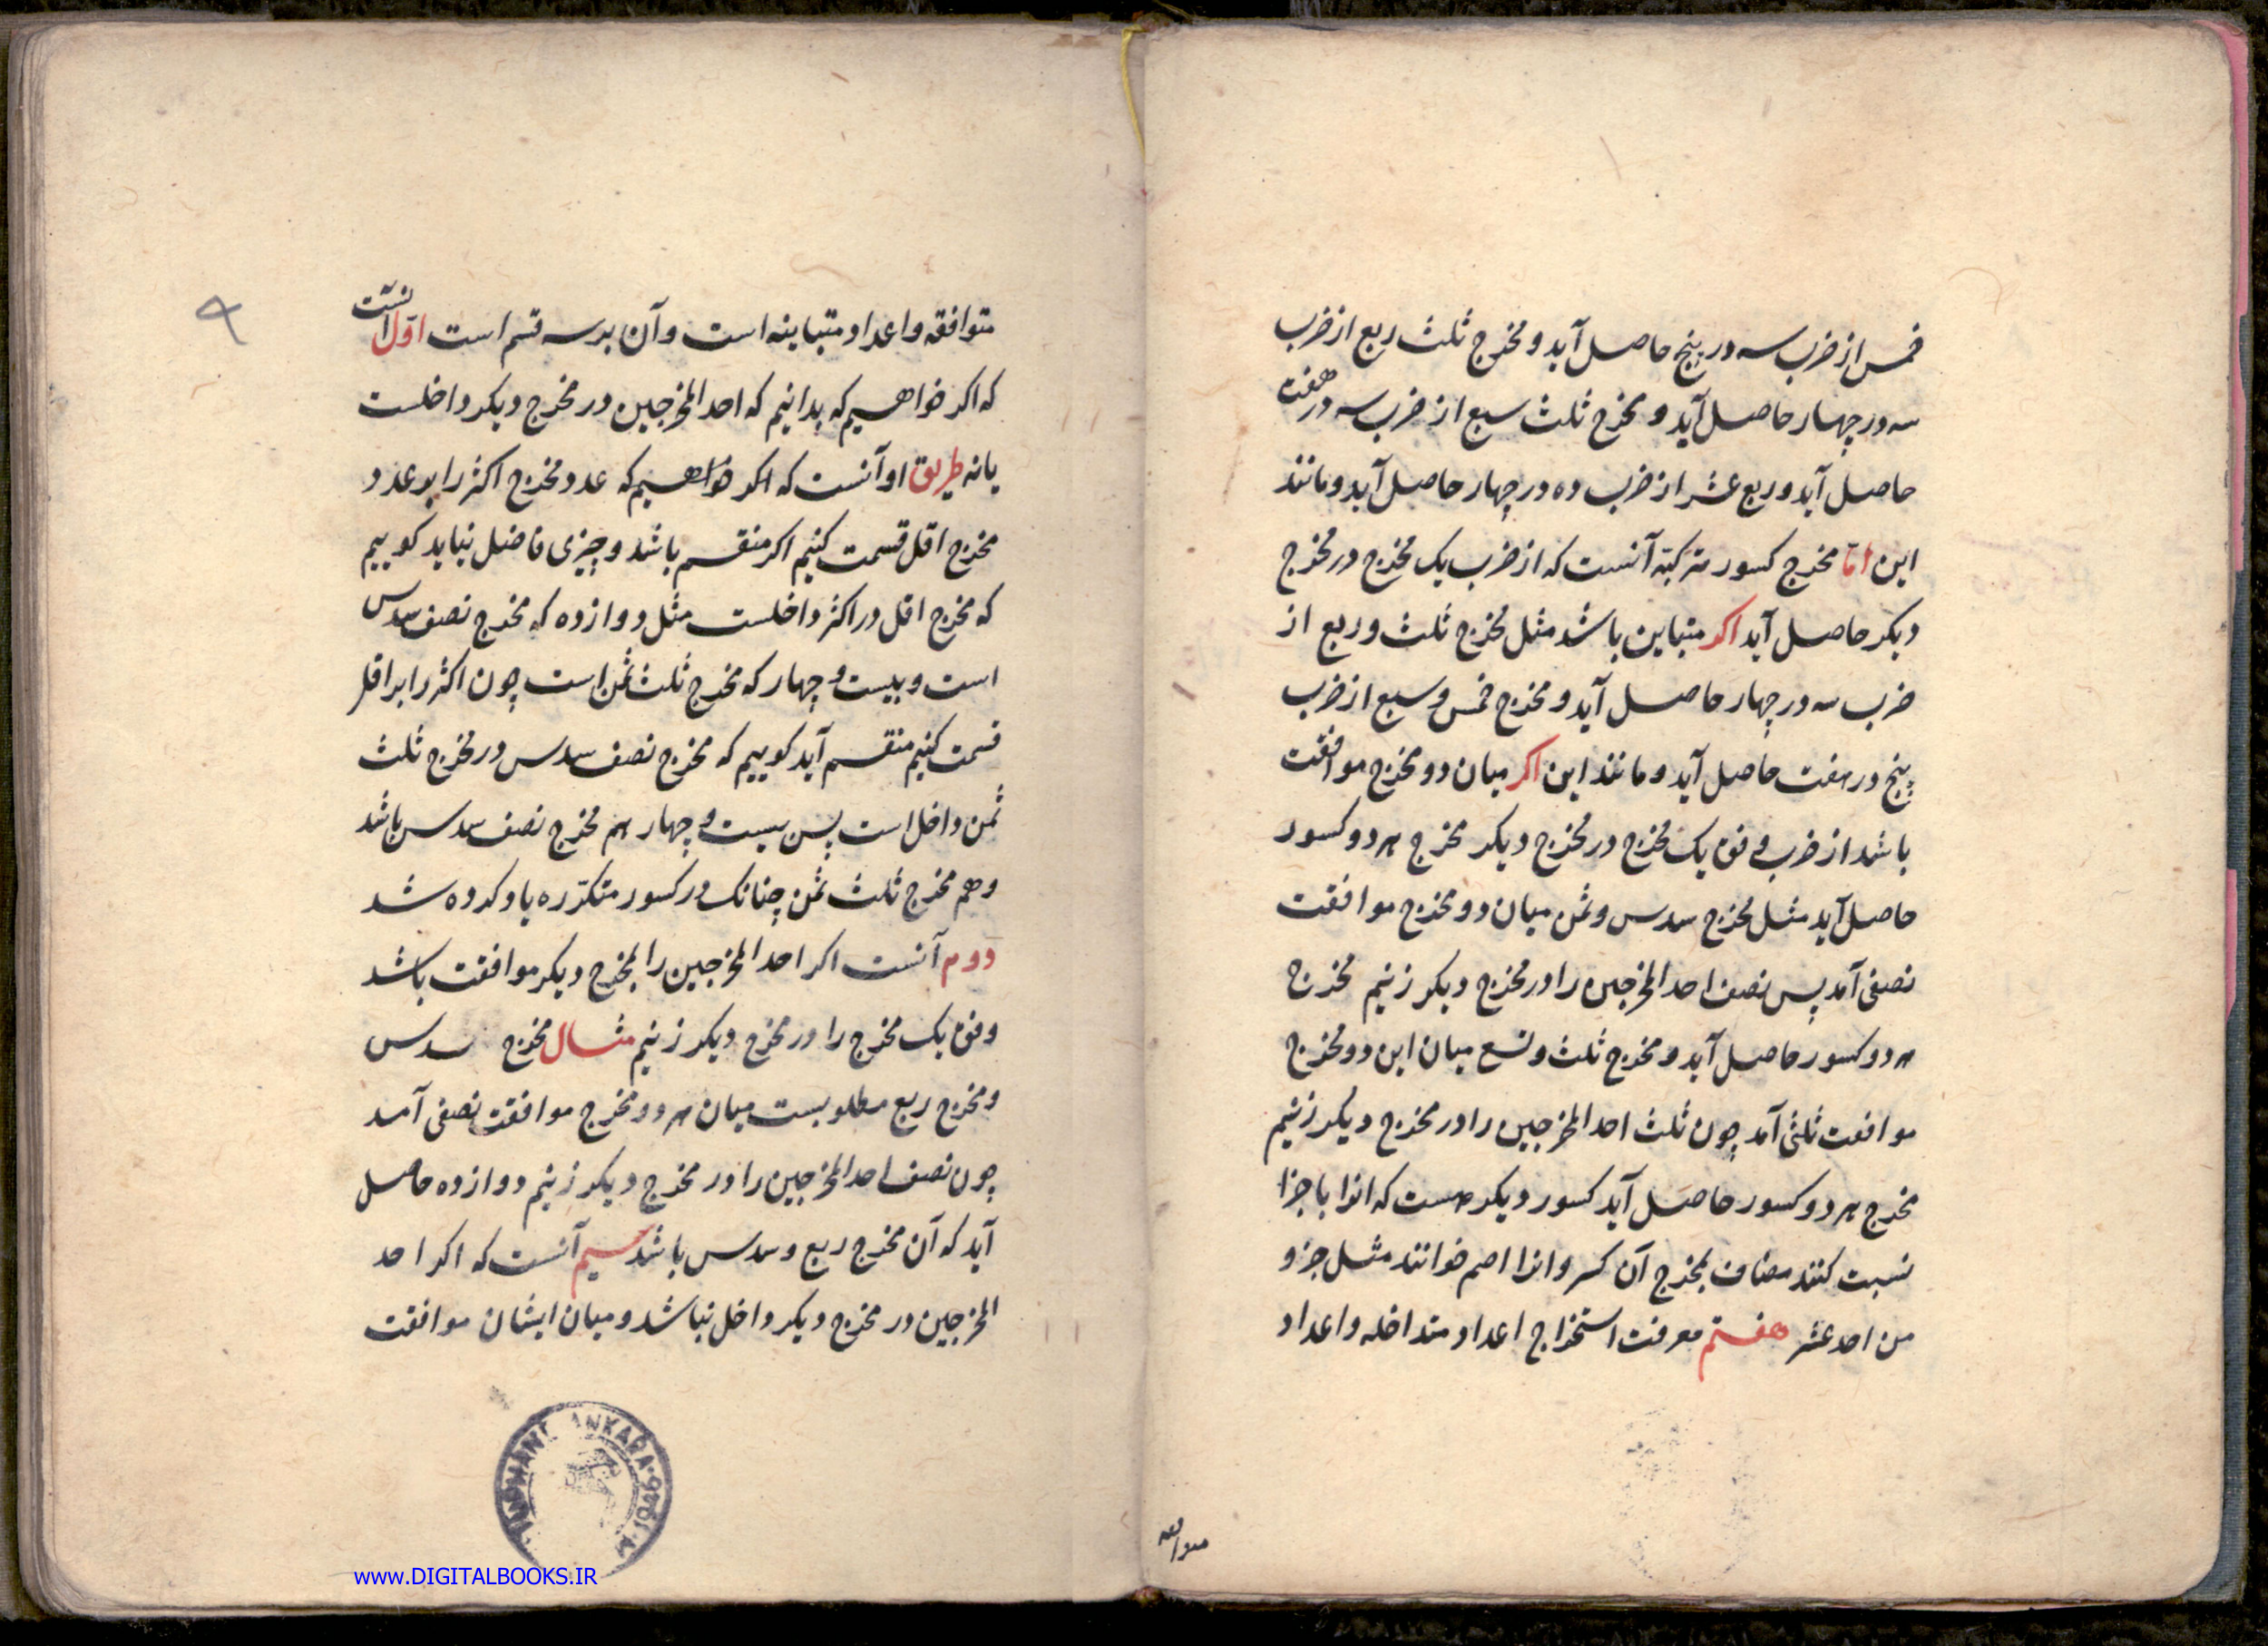 خمس از ضرب سه در پنج حاصل آید و مخرج ثلث ربع از ضرب
سه در چهار حاصل آید و مخرج ثلث سبع از ضرب سه در هفت
حاصل آید و ربع عشر از ضرب ده در چهار حاصل آید و مانند
این امّا مخرج کسور مرکبّه آنست که از ضرب یک مخرج در مخرج
دیکر حاصل آید اکر متباین باشد مثل مخرج ثلث و ربع از
ضرب سه در چهار حاصل آید و مخرج خمس و سبع از ضرب
پنج در هفت حاصل آید و مانند این اکر میان دو مخرج موافقت
باشد از ضرب وفق یک مخرج در مخرج دیکر مخرج هر دو کسور
حاصل آید مثل مخرج سدس و ثمن میان دو مخرج موافقت
نصفی آمد پس نصف احد المخرجین را در مخرج دیکر زنیم مخرج
هر دو کسور حاصل آید و مخرج ثلث و تسع میان این دو مخرج
موافقت ثلثی آمد چون ثلث احد المخرجین را در مخرج دیکر زنیم
مخرج هر دو کسور حاصل آید کسور دیکر هست که انرا با جزا
نسبت کنند مضاف بمخرج آن کسر و انرا اصم خوانند مثل جزو
من احد عشر هفتم معرفت استخراج اعداد متداخله و اعداد
متوافقه
متوافقه و اعداد متباینه است و آن بر سه قسم است اوّل آنست
که اکر خواهیم که بدانیم که احد المخرجین در مخرج دیکر داخلست
یا نه طریق او آنست که اکر خواهیم که عدد مخرج اکثر را بر عدد
مخرج اقل قسمت کنیم اکر منقسم باشد و چیزی فاضل نیاید کوییم
که مخرج اقل در اکثر داخلست مثل دوازده که مخرج نصف سدس
است و بیست و چهار که مخرج ثلث ثمن است چون اکثر را بر اقل
قسمت کنیم منقسم آید کوییم که مخرج نصف سدس در مخرج ثلث
ثمن داخل است پس بیست و چهار هم مخرج نصف سدس باشد
و هم مخرج ثلث ثمن چنانک در کسور متکرّره یاد کرده شد
دوم آنست اکر احد المخرجین را بمخرج دیکر موافقت باشد
وفق یک مخرج را در مخرج دیکر زنیم مثال مخرج سدس
و مخرج ربع مطلوبست میان هر دو مخرج موافقت نصفی آمد
چون نصف احد المخرجین را در مخرج دیکر زنیم دوازده حاصل
آید که آن مخرج ربع و سدس باشد سیم آنست که اکر احد
المخرجین در مخرج دیکر داخل نباشد و میان ایشان موافقت
٩
ANKARA
www.DIGITALBOOKS.IR